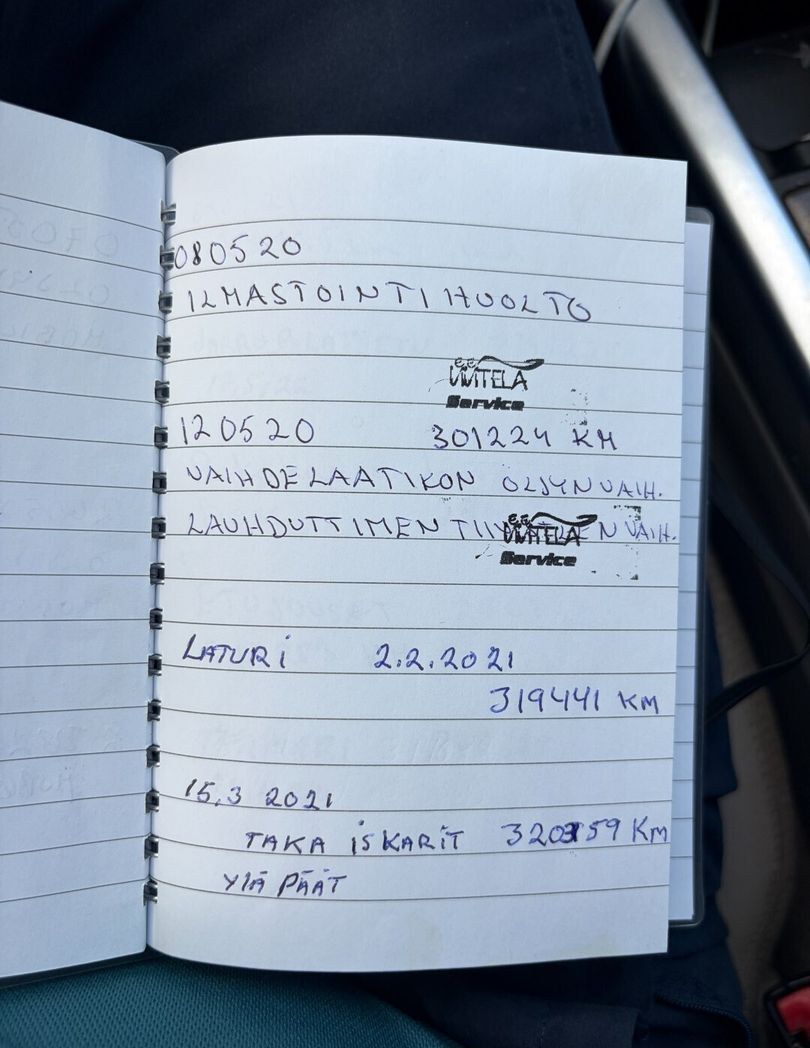 080520
ILMASTOINTIHUOLTO
VIITELA
Service
120520 301224 KM
VAIHDELAATIKON ÖLJYNVAIH.
LAUHDUTTIMEN VAIH.
VIITELA
Service
LATURI 2.2.2021
319441 KM
15.3 2021
TAKA ISKARIT KM
YLÄ PÄÄT